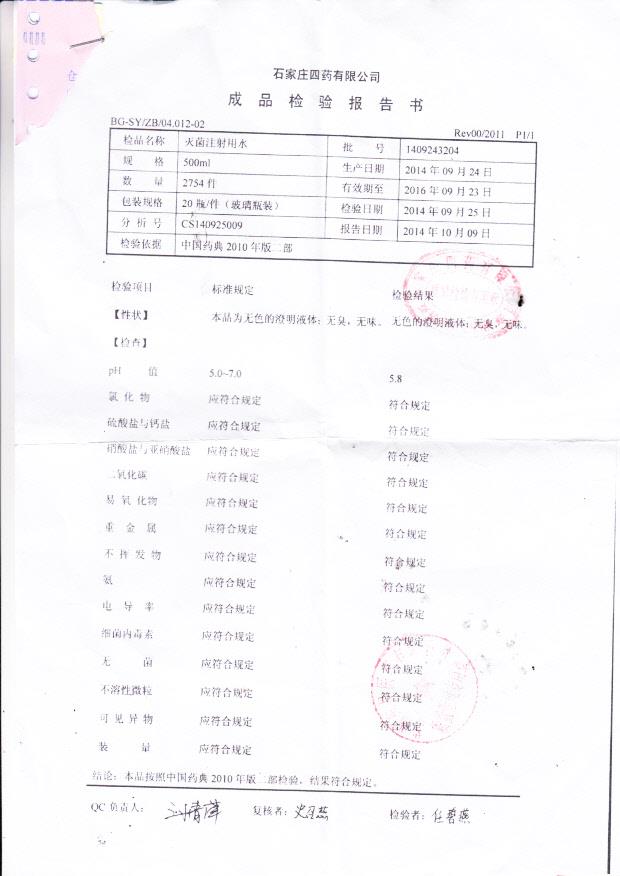 石家庄四药有限公司
成品检验报告书
BG-SY/ZB/04.012-02
Rev00/2011 P1/1
检品名称 灭菌注射用水 批号 1409243204
规格 500ml 生产日期 2014年09月24日
数量 2754件 有效期至 2016年09月23日
包装规格 20瓶/件（玻璃瓶装） 检验日期 2014年09月25日
分析号 CS140925009 报告日期 2014年10月09日
检验依据 中国药典2010年版二部
检验项目 标准规定 检验结果
【性状】 本品为无色的澄明液体；无臭，无味。 无色的澄明液体；无臭，无味。
【检查】
pH值 5.0~7.0 5.8
氯化物 应符合规定 符合规定
硫酸盐与钙盐 应符合规定 符合规定
硝酸盐与亚硝酸盐 应符合规定 符合规定
二氧化碳 应符合规定 符合规定
易氧化物 应符合规定 符合规定
重金属 应符合规定 符合规定
不挥发物 应符合规定 符合规定
氨 应符合规定 符合规定
电导率 应符合规定 符合规定
细菌内毒素 应符合规定 符合规定
无菌 应符合规定 符合规定
不溶性微粒 应符合规定 符合规定
可见异物 应符合规定 符合规定
装量 应符合规定 符合规定
结论：本品按照中国药典2010年版二部检验，结果符合规定。
QC负责人： 刘青萍 复核者： 检验者：任碧燕